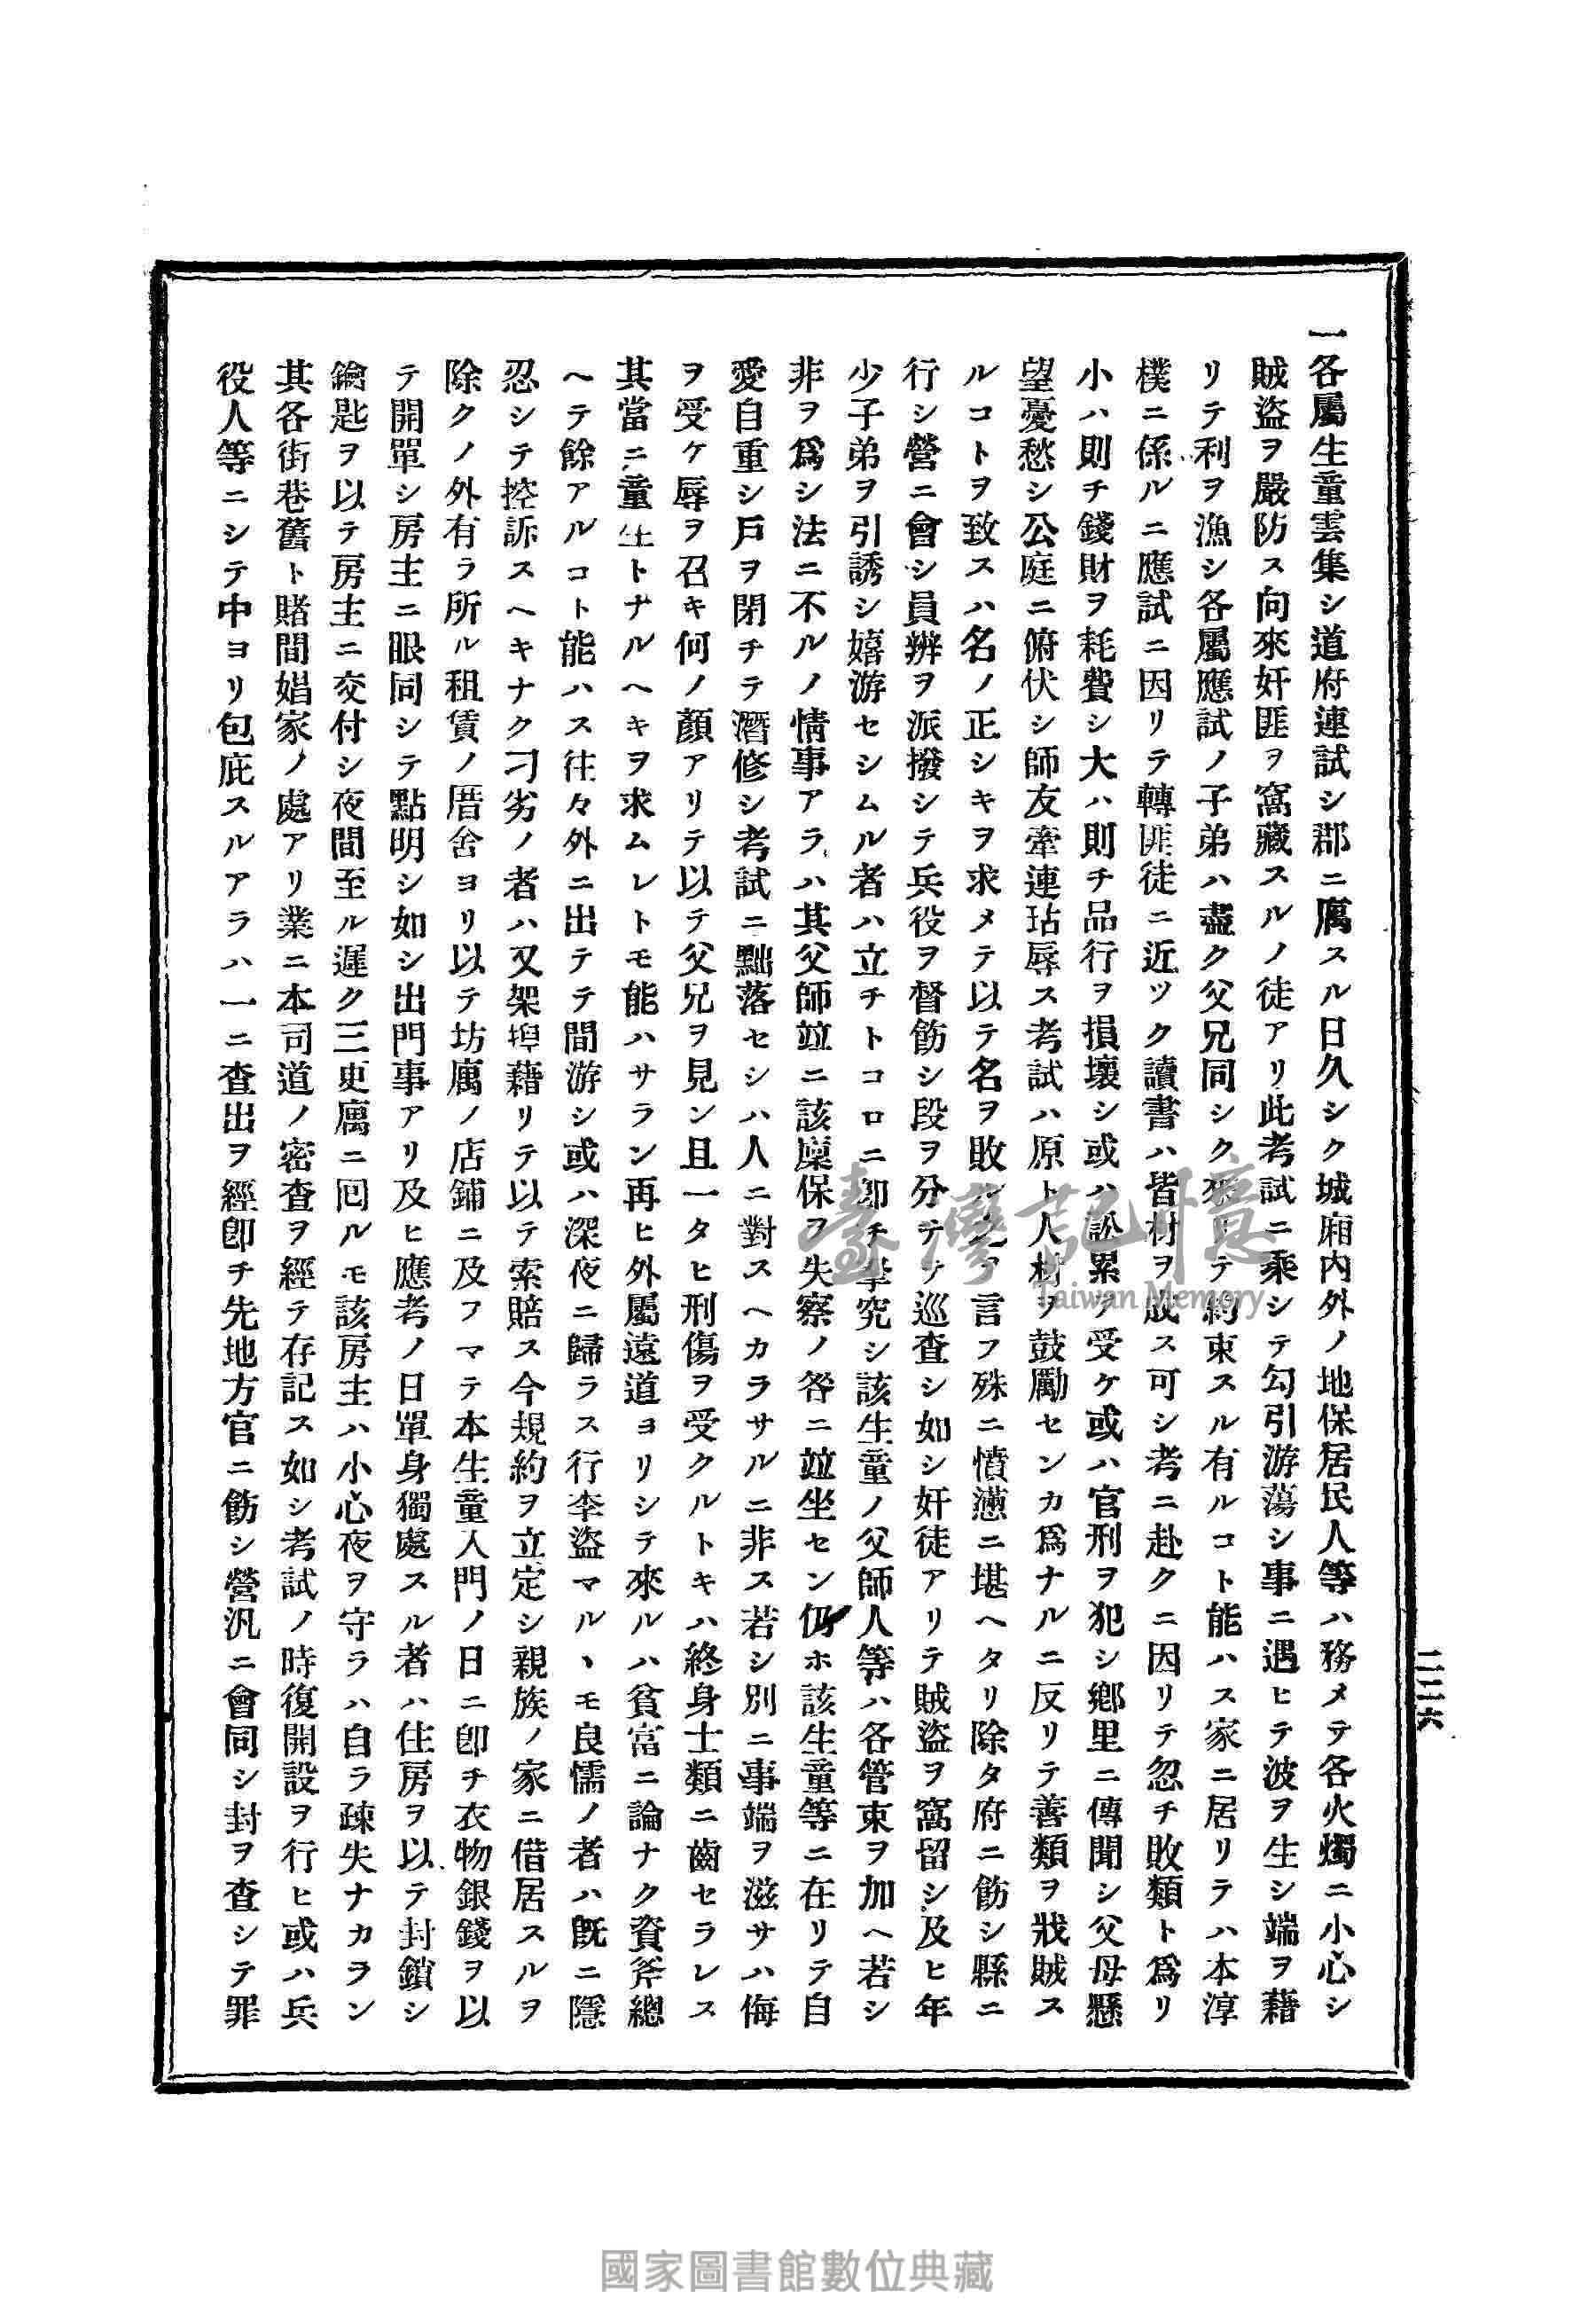 一各屬生童雲集シ道府連試シ郡ニ厲スル日久シク城廂内外ノ地保居民人等ハ務メテ各火燭ニ小心シ
賊盜ヲ嚴防ス向來奸匪ヲ窩藏スルノ徒アリ此考試ニ乘シテ勾引游蕩シ事ニ遇ヒテ波ヲ生シ端ヲ藉
リテ利ヲ漁シ各屬應試ノ子弟ハ盡ク父兄同シク來リテ約束スル有ルコト能ハス家ニ居リテハ本淳
樸ニ係ルニ應試ニ因リテ轉匪徒ニ近ツク讀書ハ皆材ヲ成ス可シ考ニ赴クニ因リテ忽チ敗類ト爲リ
小ハ則チ錢財ヲ耗費シ大ハ則チ品行ヲ損壞シ或ハ訟累ヲ受ケ或ハ官刑ヲ犯シ鄕里ニ傳聞シ父母懸
望憂愁シ公庭ニ俯伏シ師友牽連玷辱ス考試ハ原ト人材ヲ鼓勵センカ爲ナルニ反リテ善類ヲ戕賊ス
ルコトヲ致スハ名ノ正シキヲ求メテ以テ名ヲ敗ル之ヲ言フ殊ニ憤懣ニ堪ヘタリ除タ府ニ飭シ縣ニ
行シ營ニ會シ員辨ヲ派撥シテ兵役ヲ督飭シ段ヲ分テテ巡査シ如シ奸徒アリテ賊盜ヲ窩留シ及ヒ年
少子弟ヲ引誘シ嬉游セシムル者ハ立チトコロニ卽チ拏究シ該生童ノ父師人等ハ各管束ヲ加ヘ若シ
非ヲ爲シ法ニ不ルノ情事アラハ其父師竝ニ該廩保ヲ失察ノ咎ニ竝坐セン仍ホ該生童等ニ在リテ自
愛自重シ戶ヲ閉チテ潛修シ考試ニ黜落セシハ人ニ對スヘカラサルニ非ス若シ別ニ事端ヲ滋サハ侮
ヲ受ケ辱ヲ召キ何ノ顏アリテ以テ父兄ヲ見ン且一タヒ刑傷ヲ受クルトキハ終身士類ニ齒セラレス
其當ニ童生トナルヘキヲ求ムレトモ能ハサラン再ヒ外屬遠道ヨリシテ來ルハ貧富ニ論ナク資斧總
ヘテ餘アルコト能ハス往々外ニ出テテ間游シ或ハ深夜ニ歸ラス行李盜マルヽモ良懦ノ者ハ旣ニ隱
忍シテ控訴スヘキナク刁劣ノ者ハ又架捏藉リテ以テ索賠ス今規約ヲ立定シ親族ノ家ニ借居スルヲ
除クノ外有ラ所ル租賃ノ厝舍ヨリ以テ坊厲ノ店鋪ニ及フマテ本生童入門ノ日ニ卽チ衣物銀錢ヲ以
テ開單シ房主ニ眼同シテ點明シ如シ出門事アリ及ヒ應考ノ日單身獨處スル者ハ住房ヲ以テ封鎖シ
鑰匙ヲ以テ房主ニ交付シ夜間至ル遲ク三更厲ニ囘ルモ該房主ハ小心夜ヲ守ラハ自ラ疎失ナカラン
其各街巷舊ト賭間娼家ノ處アリ業ニ本司道ノ密査ヲ經テ存記ス如シ考試ノ時復開設ヲ行ヒ或ハ兵
役人等ニシテ中ヨリ包庇スルアラハ一ニ査出ヲ經卽チ先地方官ニ飭シ營汛ニ會同シ封ヲ査シテ罪
二二六
臺灣記憶
Taiwan Memory
國家圖書館數位典藏